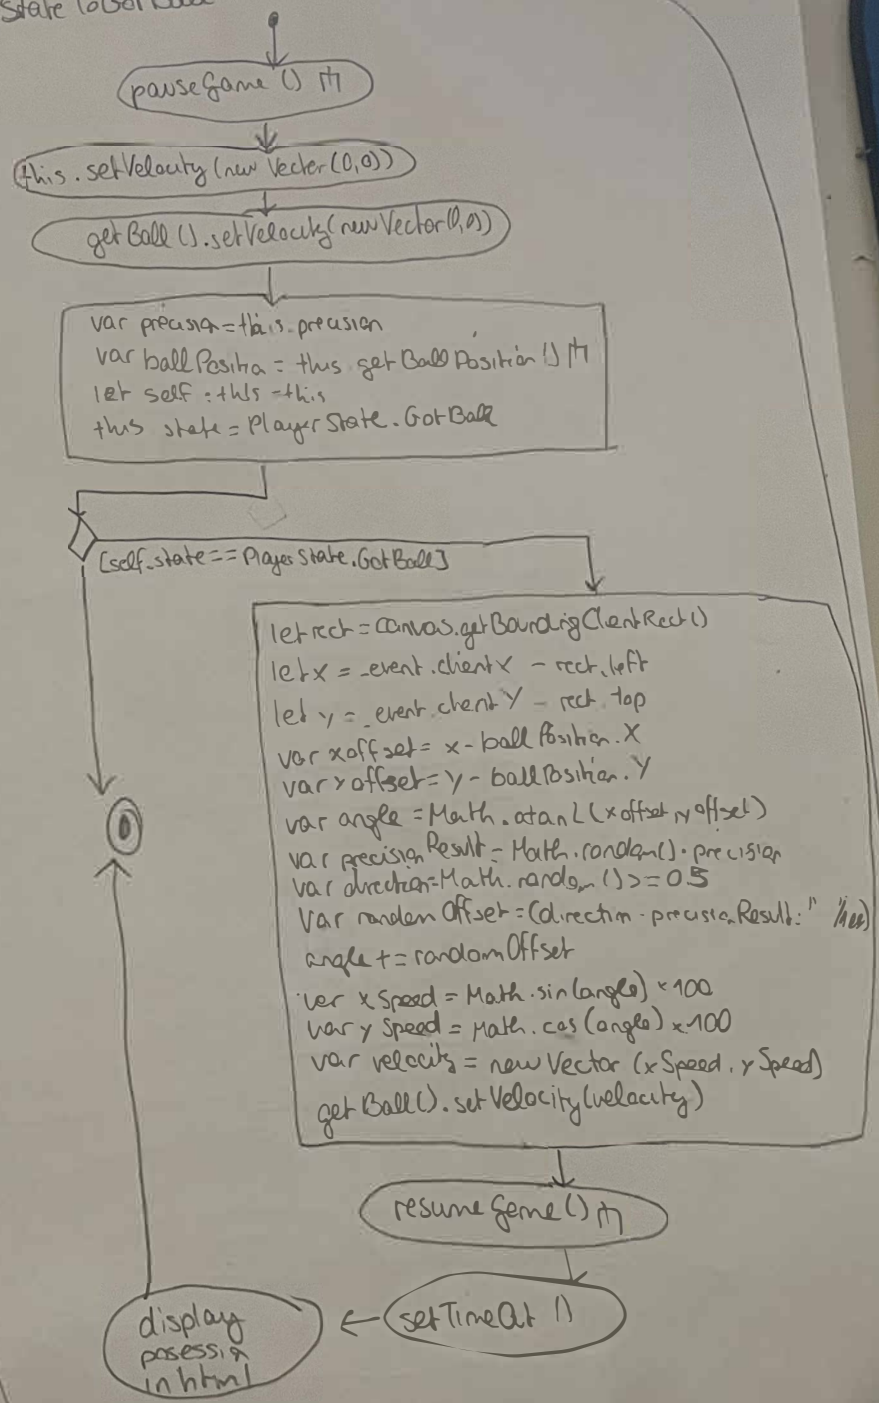 State
pauseGame ()
this.setVelocity(new Vector(0,0))
getBall().setVelocity(new Vector(0,0))
var precision=this.precision
var ballPosition = this.getBallPosition()
let self:this=this
this state = PlayerState.GotBall
[self.state==PlayerState.GotBall]
let rect = canvas.getBoundigClientRect()
let x = _event.clientX - rect.left
let y = _event.clientY - rect.top
var xoffset = x-ballPosition.X
var yoffset=y-ballPosition.Y
var angle = Math.atan2(xoffset,yoffset)
var precisionResult=Math.random().precision
var direction=Math.random()>=0.5
var randomOffset=(direction-precisionResult:
angle+=randomOffset
var xSpeed=Math.sin(angle)×100
var ySpeed=Math.cos(angle)×100
var velocity=new Vector(xSpeed.ySpeed)
getBall().setVelocity(velocity)
resumeGame()
setTimeOut ()
display
posession
in html